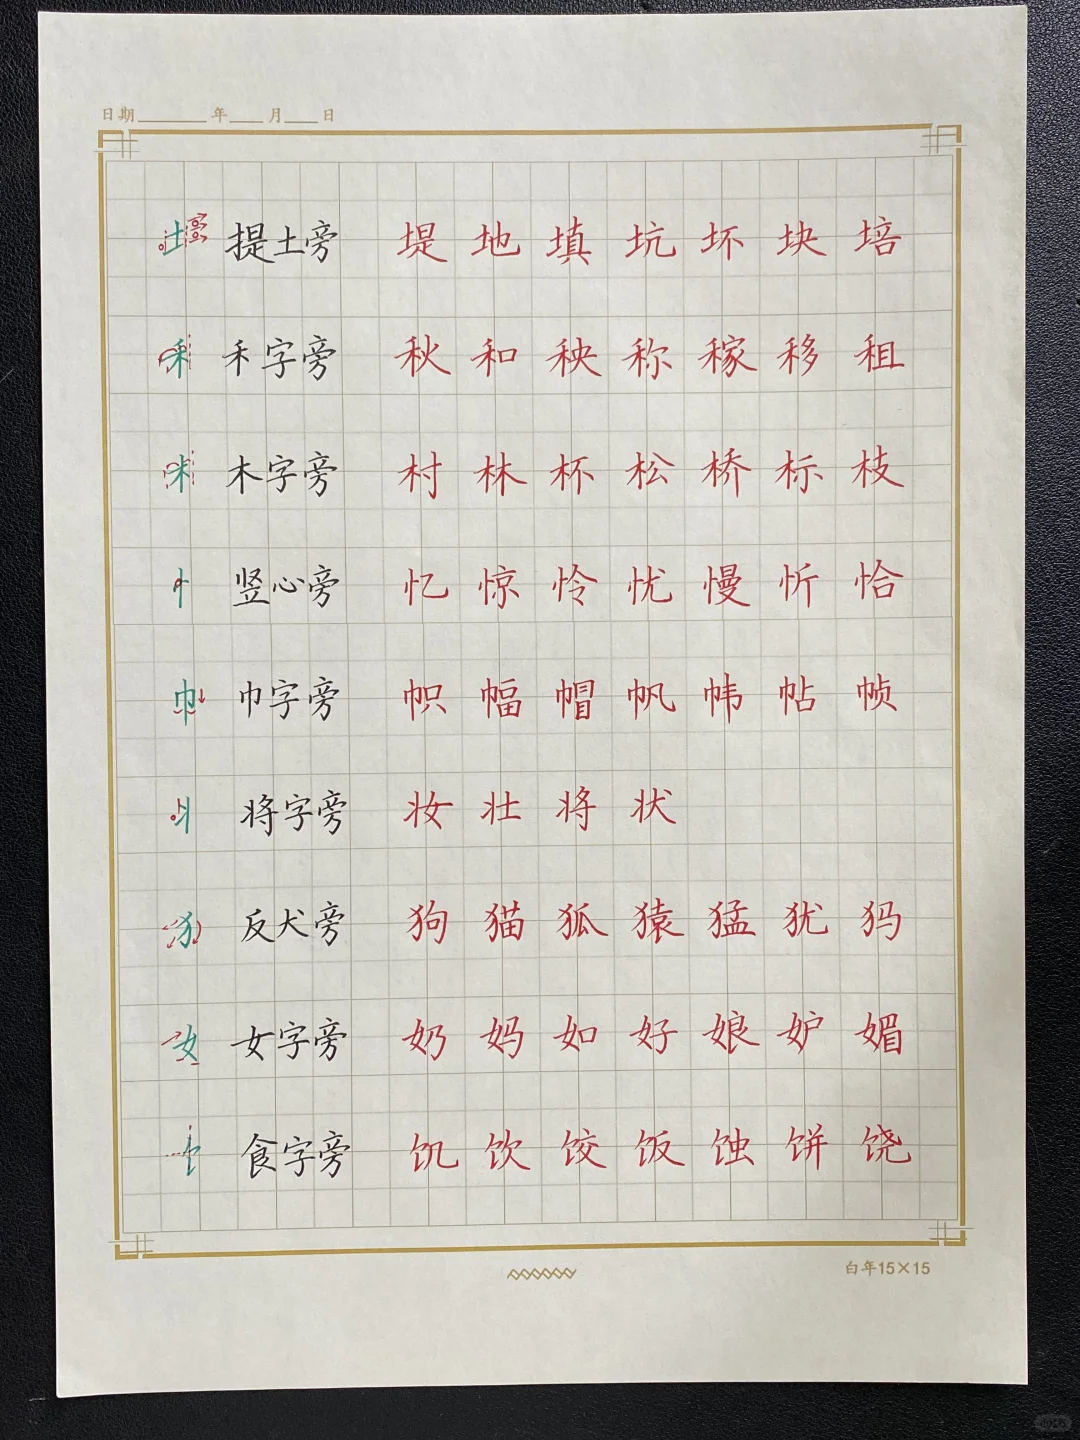 日期 年 月 日
土 提土旁 堤 地 填 坑 坏 块 培
禾 禾字旁 秋 和 秧 称 稼 移 租
木 木字旁 村 林 杯 松 桥 标 枝
忄 竖心旁 忆 惊 怜 忧 慢 忻 恰
巾 巾字旁 帜 幅 帽 帆 帏 帖 帧
丬 将字旁 妆 壮 将 状
犭 反犬旁 狗 猫 狐 猿 猛 犹 犸
女 女字旁 奶 妈 如 好 娘 妒 媚
饣 食字旁 饥 饮 饺 饭 蚀 饼 饶
白年15×15